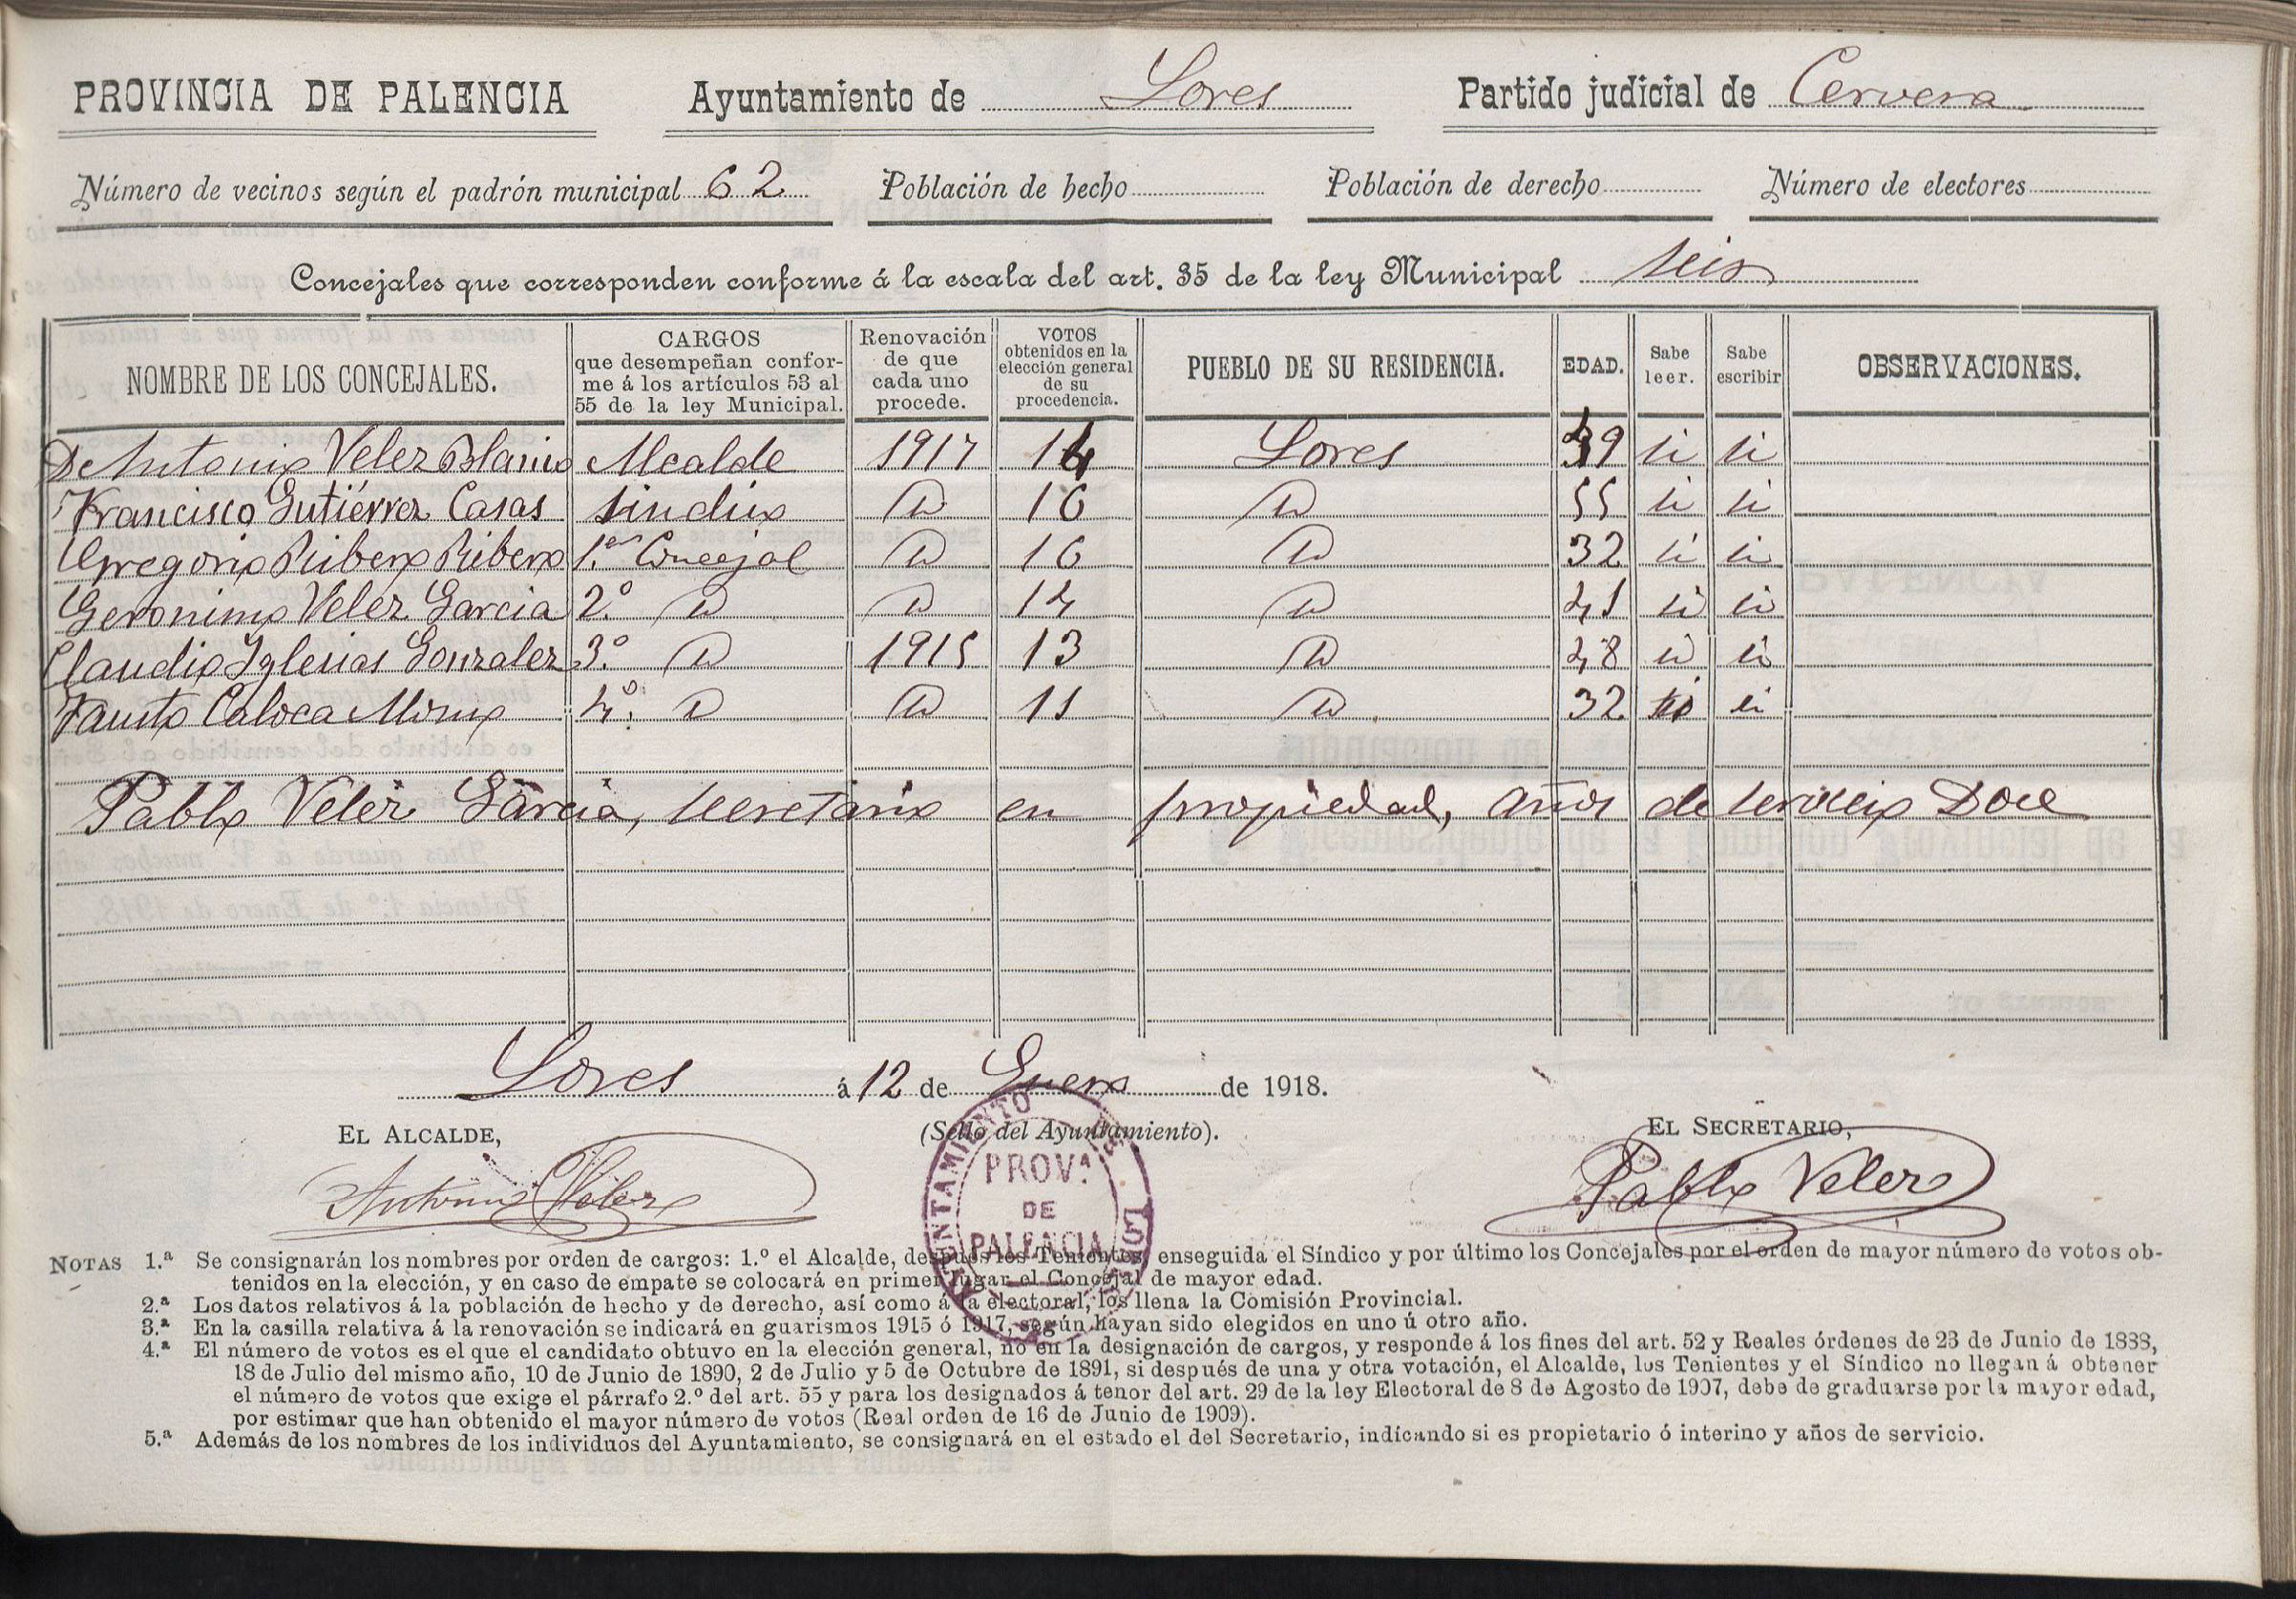 PROVINCIA DE PALENCIA Ayuntamiento de Lores Partido judicial de Cervera
Número de vecinos según el padrón municipal 62 Población de hecho Población de derecho Número de electores
Concejales que corresponden conforme á la escala del art. 35 de la ley Municipal seis
NOMBRE DE LOS CONCEJALES. CARGOS que desempeñan confor-me á los artículos 53 al 55 de la ley Municipal. Renovación de que cada uno procede. VOTOS obtenidos en la elección general de su procedencia. PUEBLO DE SU RESIDENCIA. EDAD. Sabe leer. Sabe escribir OBSERVACIONES.
Dn Antonio Velez Blanco Alcalde 1917 14 Lores 39 si si
Francisco Gutiérrez Casas Sindico Id 16 Id 55 si si
Gregorio Ribero Ribero 1.er Concejal Id 16 Id 32 si si
Geronimo Velez Garcia 2.º Id Id 14 Id 41 si si
Claudio Iglesias Gonzalez 3.º Id 1915 13 Id 48 si si
Fausto Caloca 4.º Id Id 11 Id 32 si si
Pablo Velez Garcia, secretario en propiedad, años de servicio Doce
Lores á 12 de Enero de 1918.
EL ALCALDE, (Sello del Ayuntamiento). EL SECRETARIO,
Antonio Velez Pablo Velez
AYUNTAMIENTO DE LORES
PROV.ª
DE
PALENCIA
NOTAS 1.ª Se consignarán los nombres por orden de cargos: 1.º el Alcalde, después los Tenientes, enseguida el Síndico y por último los Concejales por el orden de mayor número de votos ob-
tenidos en la elección, y en caso de empate se colocará en primer lugar el Concejal de mayor edad.
2.ª Los datos relativos á la población de hecho y de derecho, así como á la electoral, los llena la Comisión Provincial.
3.ª En la casilla relativa á la renovación se indicará en guarismos 1915 ó 1917, según hayan sido elegidos en uno ú otro año.
4.ª El número de votos es el que el candidato obtuvo en la elección general, no en la designación de cargos, y responde á los fines del art. 52 y Reales órdenes de 23 de Junio de 1888,
18 de Julio del mismo año, 10 de Junio de 1890, 2 de Julio y 5 de Octubre de 1891, si después de una y otra votación, el Alcalde, los Tenientes y el Síndico no llegan á obtener
el número de votos que exige el párrafo 2.º del art. 55 y para los designados á tenor del art. 29 de la ley Electoral de 8 de Agosto de 1907, debe de graduarse por la mayor edad,
por estimar que han obtenido el mayor número de votos (Real orden de 16 de Junio de 1909).
5.ª Además de los nombres de los individuos del Ayuntamiento, se consignará en el estado el del Secretario, indicando si es propietario ó interino y años de servicio.